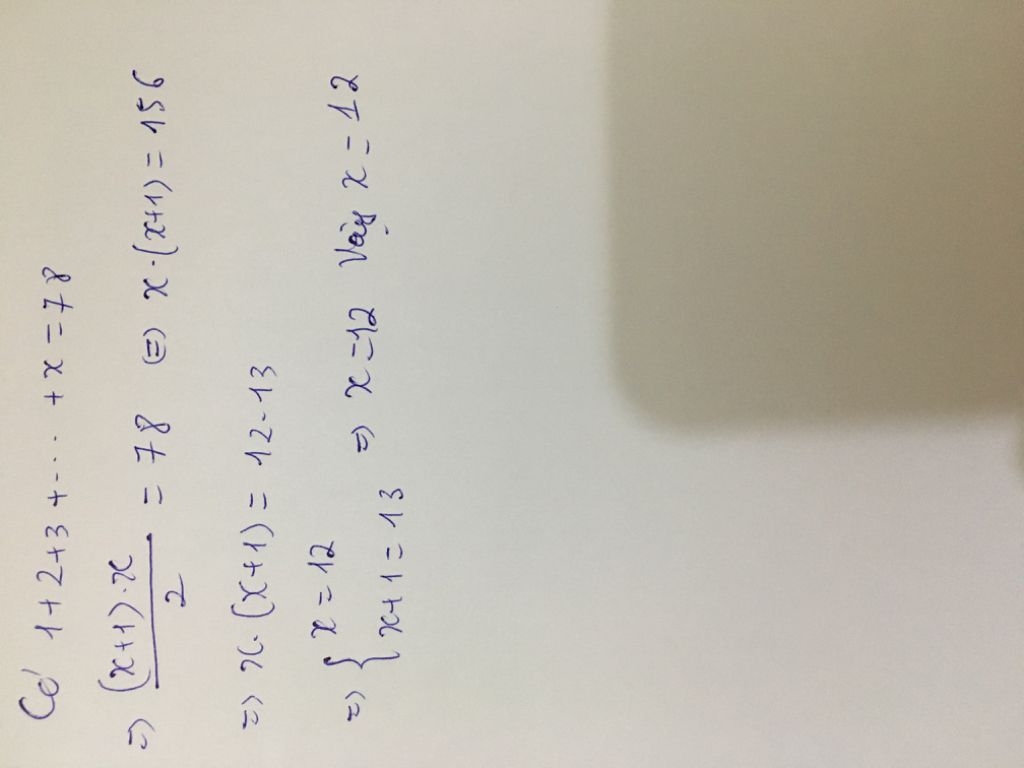 Có 1+2+3+... +x=78
=) (x+1).x/2 = 78 (=) x.(x+1)=156
=) x.(x+1) = 12.13
=) { x=12
x+1=13 =) x=12 Vậy x=12